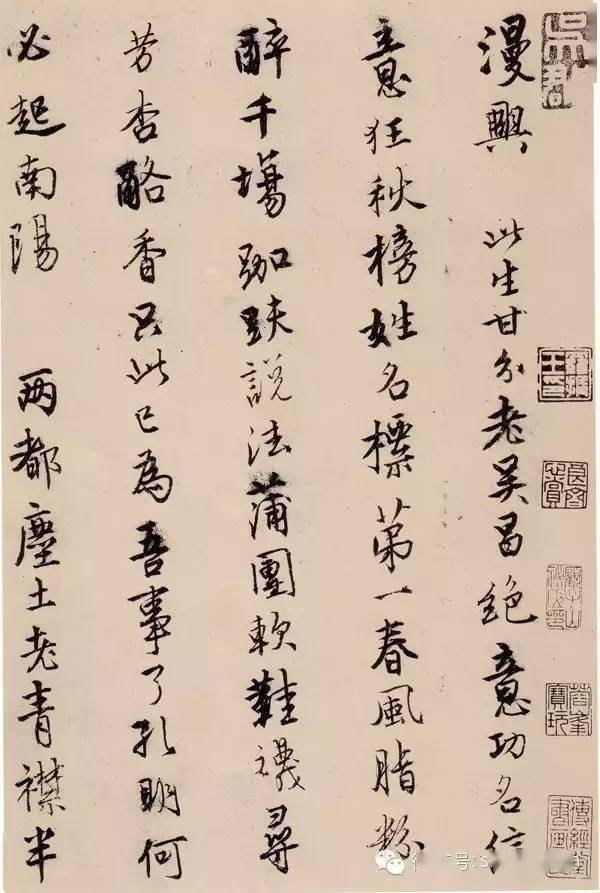 漫興 此生甘分老吳昌絶意功名信
意狂秋榜姓名標第一春風脂粉
醉千場跏趺說法蒲團軟鞋襪尋
芳杏酪香只此已為吾事了孔明何
必起南陽 两都塵土老青襟半
蓉峯寶玩